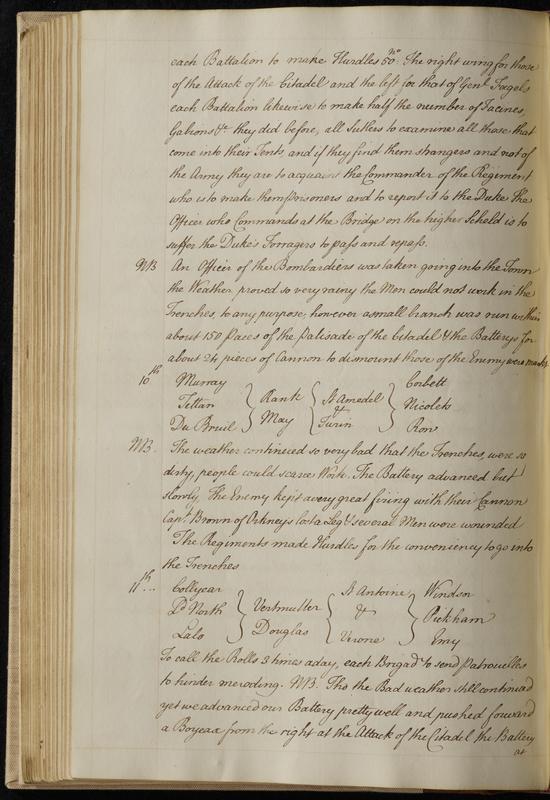 each Battalion to make Hurdles no 50. The right wing for those
of the Attack of the Citadel and the left for that of Genl. Fagels
each Battalion likewise to make half the number of Facines,
Gabions &c they did before, all Sutlers to examine all those that
come into their Tents, and if they find them strangers and not of
the Army they are to acquaint the Commander of the Regiment
who is to make them prisoners and to report it to the Duke. The
Officer who Commands at the Bridge on the higher Scheld is to
suffer the Duke's Forragers to pass and repass.
NB An Officer of the Bombardiers was taken going into the Town
the Weather proved so very rainy the Men could not work in the
Trenches, to any purpose, however a small branch was run within
about 150 paces of the Palisade of the Citadel & the Batterys for
about 24 pieces of Cannon to dismount those of the Enemy were made.
10th Murray } Rank { St Amedel } Corbett
Tettau } { & } Nicolek
Du Breuil } May { Turin } Row
NB. The weather continued so very bad that the Trenches, were so
dirty, people could scarce Work. The Battery advanced but
slowly, The Enemy kept a very great firing with their Cannon
Capt. Brown of Orkneys lost a Leg & several Men were wounded
The Regiments made Hurdles for the conveniency to go into
the Trenches
11th... Collyear } St Antoine } Windsor
Ld North } Vertmuller { & } Pickham
Lalo } Douglas { Verone } Emry
To call the Rolls 3 times a day, each Brigade to send Patrouilles
to hinder meroding. NB. Tho the Bad weather still continued
yet we advanced our Battery pretty well and pushed forward
a Boyeau from the right at the Attack of the Citadel the Battery
at